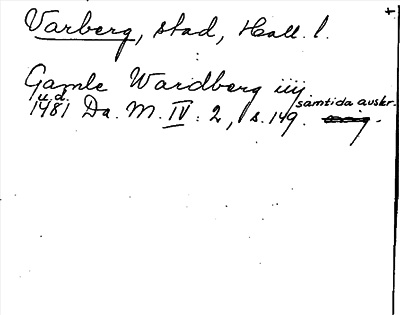 Varberg, stad, Hall. l. +
Gamle Wardberg iiij
u.d. samtida avskr.
1481 Da. M. IV: 2, s. 149.